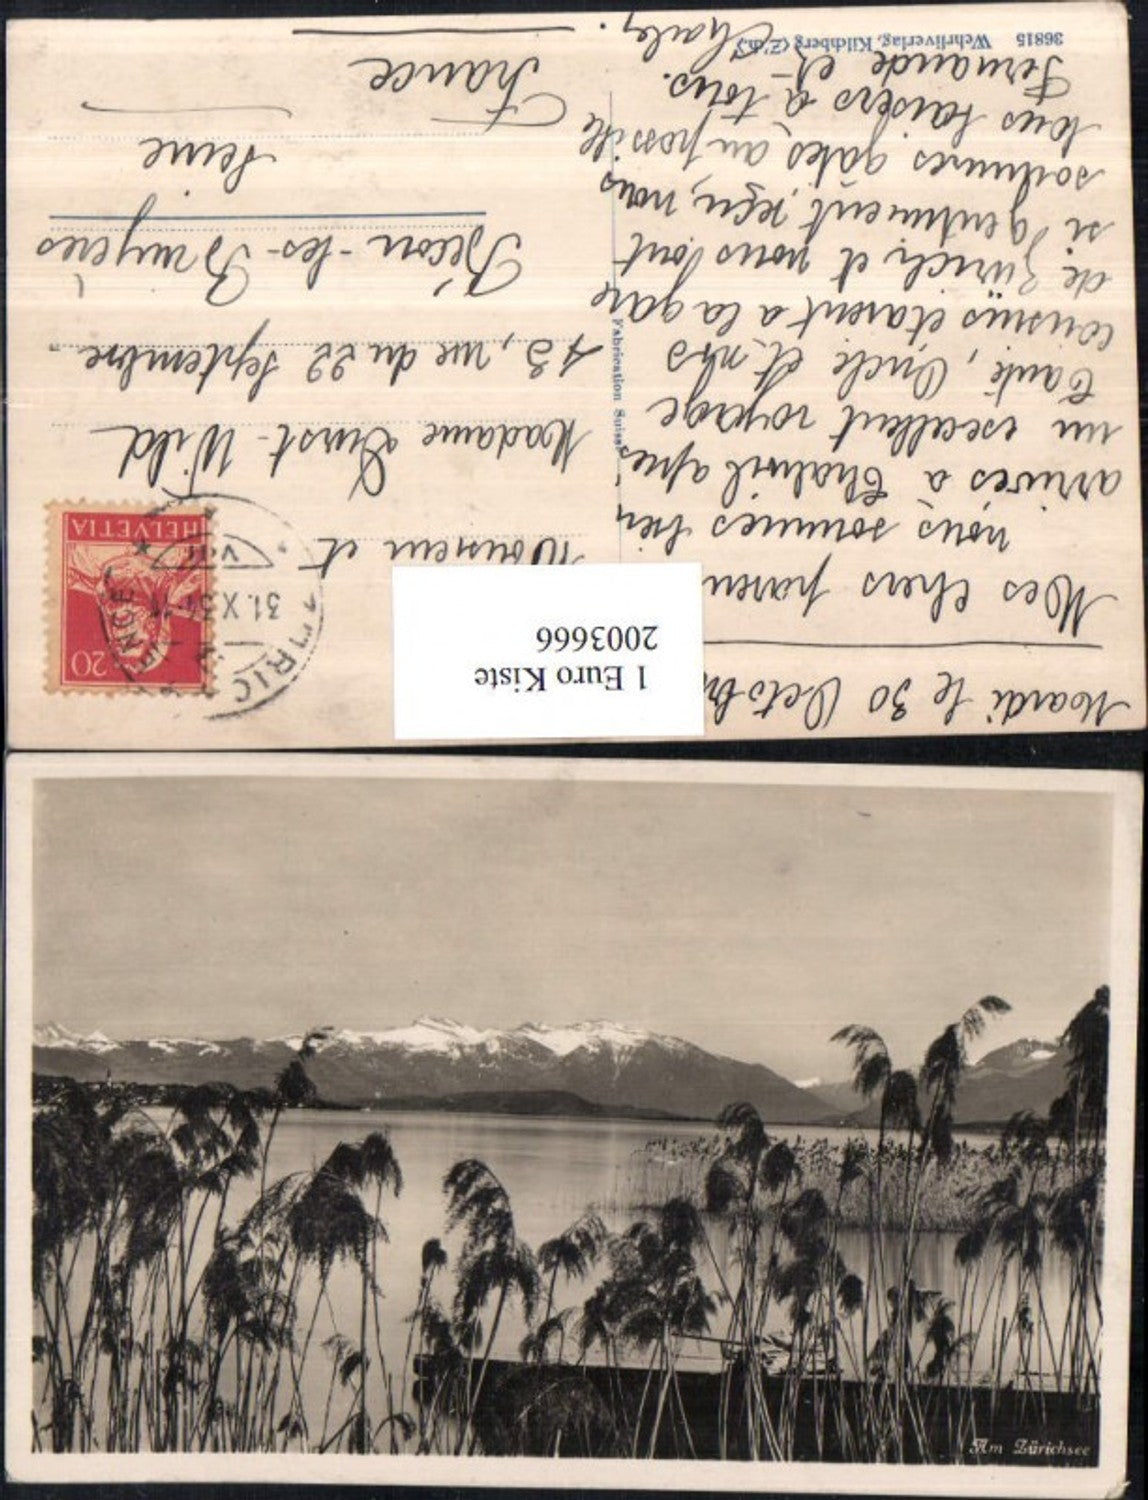 Mardi le 30 Octob
Mes chers paren
nous sommes bien
arrivés à Thalwil après
un excellent voyage
Tante, Oncle et nos
cousins étaient à la gare
de Zürich et nous sont
si gentiment reçu, nous
sommes gatés au possible
bons baisers à tous.
Fernande et
Charley.
36815 Wehrliverlag, Kilchberg (Zch.)
Fabrication Suisse
1 Euro Kiste
2003666
HELVETIA
20
31.X.34-11
VIII
Monsieur et
Madame Durst-Wild
43, rue du 22 Septembre
Bécon-les-Bruyères
Seine
France
Am Zürichsee